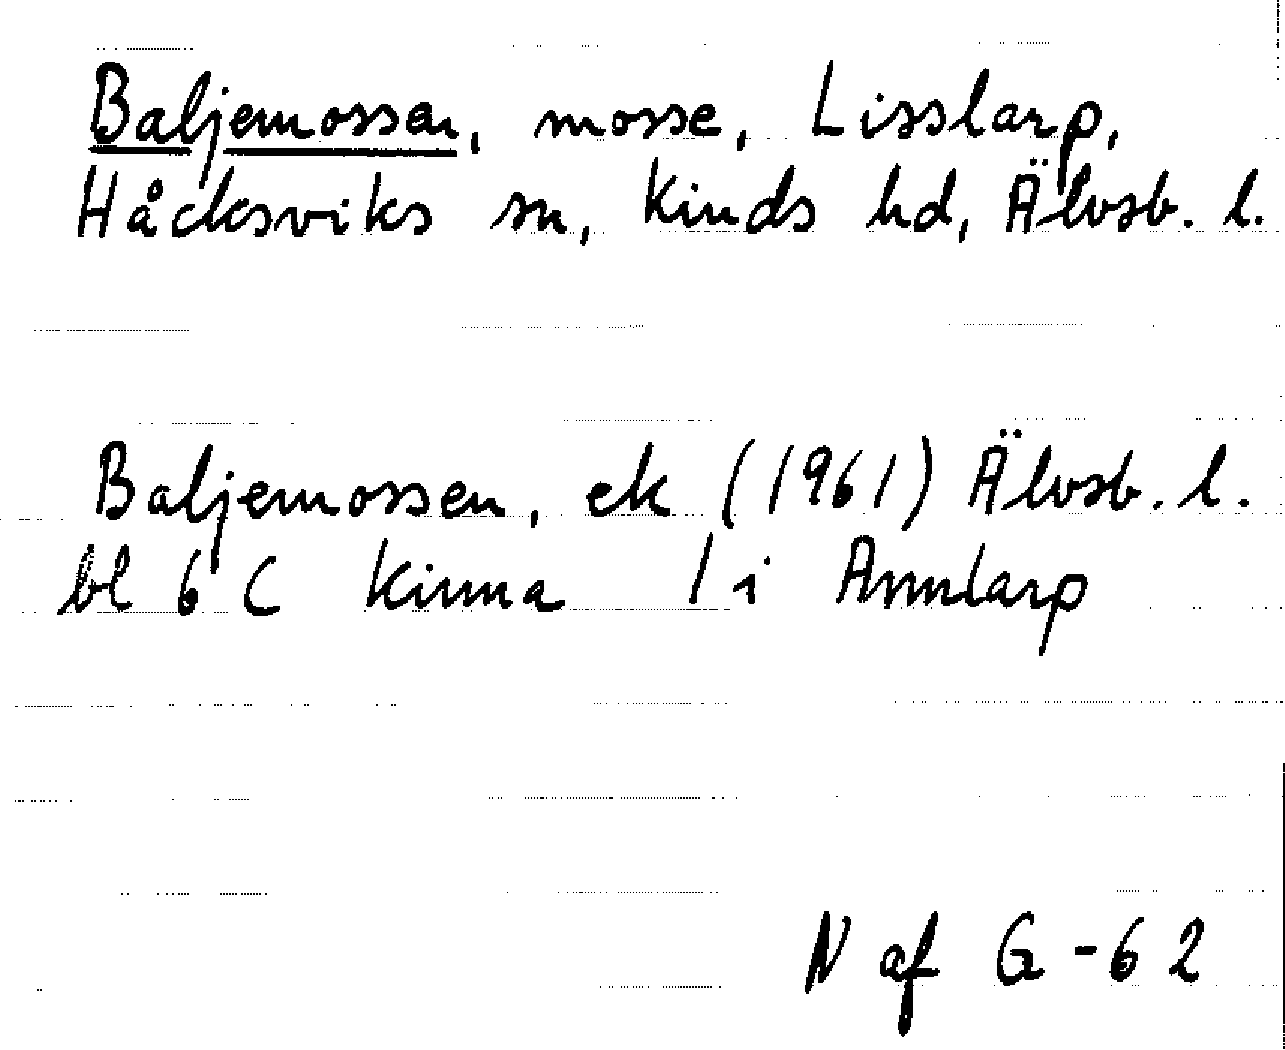 Baljemossen, mosse, Lisslarp,
Håcksviks sn, Kinds hd, Älvsb. l.
Baljemossen, ek (1961) Älvsb. l.
bl 6 C Kinna 1 i Annlarp
N af G -62